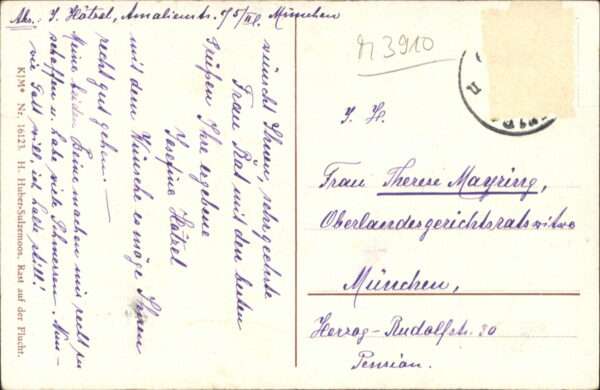 Abs. J. Hötzel, Amalienstr. 75/III. München
wünscht Ihnen, sehrgeehrte
Frau Rat mit den besten
Grüßen Ihre ergebene
Josefine Hötzel
mit dem Wunsche es möge Ihnen
recht gut gehen. —
Meine beiden Beine machen mir recht zu
schaffen u. habe viele Schmerzen. Nun –
wie Gott will, ich halte still!
KJM* Nr. 16123. H. Huber-Sulzemoos, Rast auf der Flucht.
3910
I. H.
Frau Therese Mayring,
Oberlandesgerichtsratswitwe
München,
Herzog-Rudolfstr. 30
Pension.